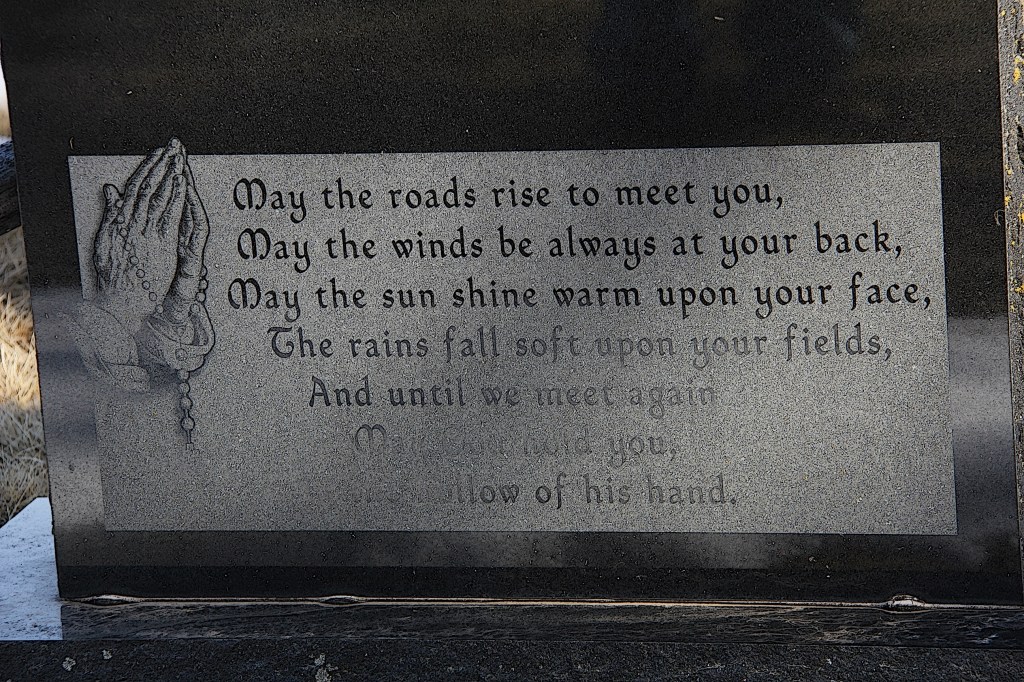 May the roads rise to meet you,
May the winds be always at your back,
May the sun shine warm upon your face,
The rains fall soft upon your fields,
And until we meet again
May God hold you,
hollow of his hand.